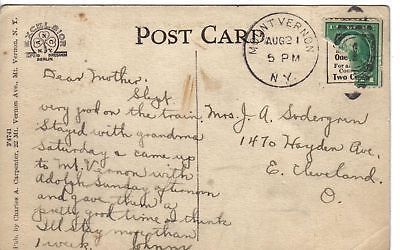 EXCELSIOR
BERLIN.
POST CARD
MOUNT VERNON
AUG 21
5 PM
N.Y.
One
For a
Two C
Pub. by Charles A. Carpenter, 22 Mt. Vernon Ave., Mt. Vernon, N. Y.
Dear Mother.
Slept
very good on the train,
Stayed with grandma
Saturday & came up
to Mt. Vernon with
Adolph Sunday afternoon
and gave them a
pretty good time I think
I'll stay more than
1 week. Johnny
Mrs. J. A. Sodergren
1470 Hayden Ave,
E. Cleveland,
O.